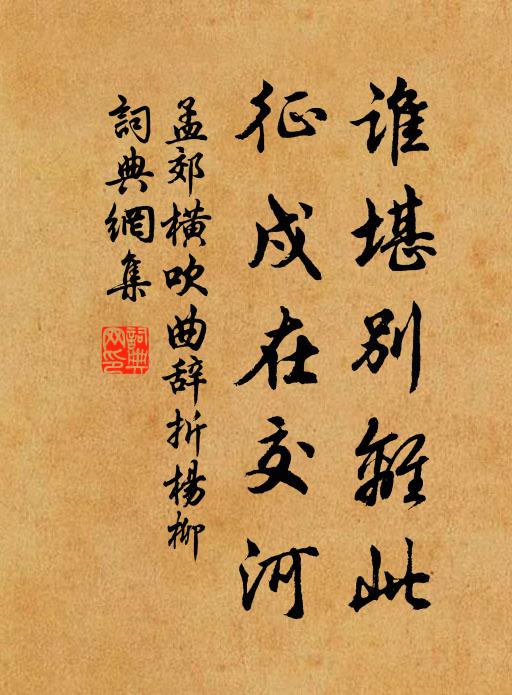 谁堪别離此
征戍在交河
孟郊横吹曲辞折楊柳
詞典網集
詞典网印